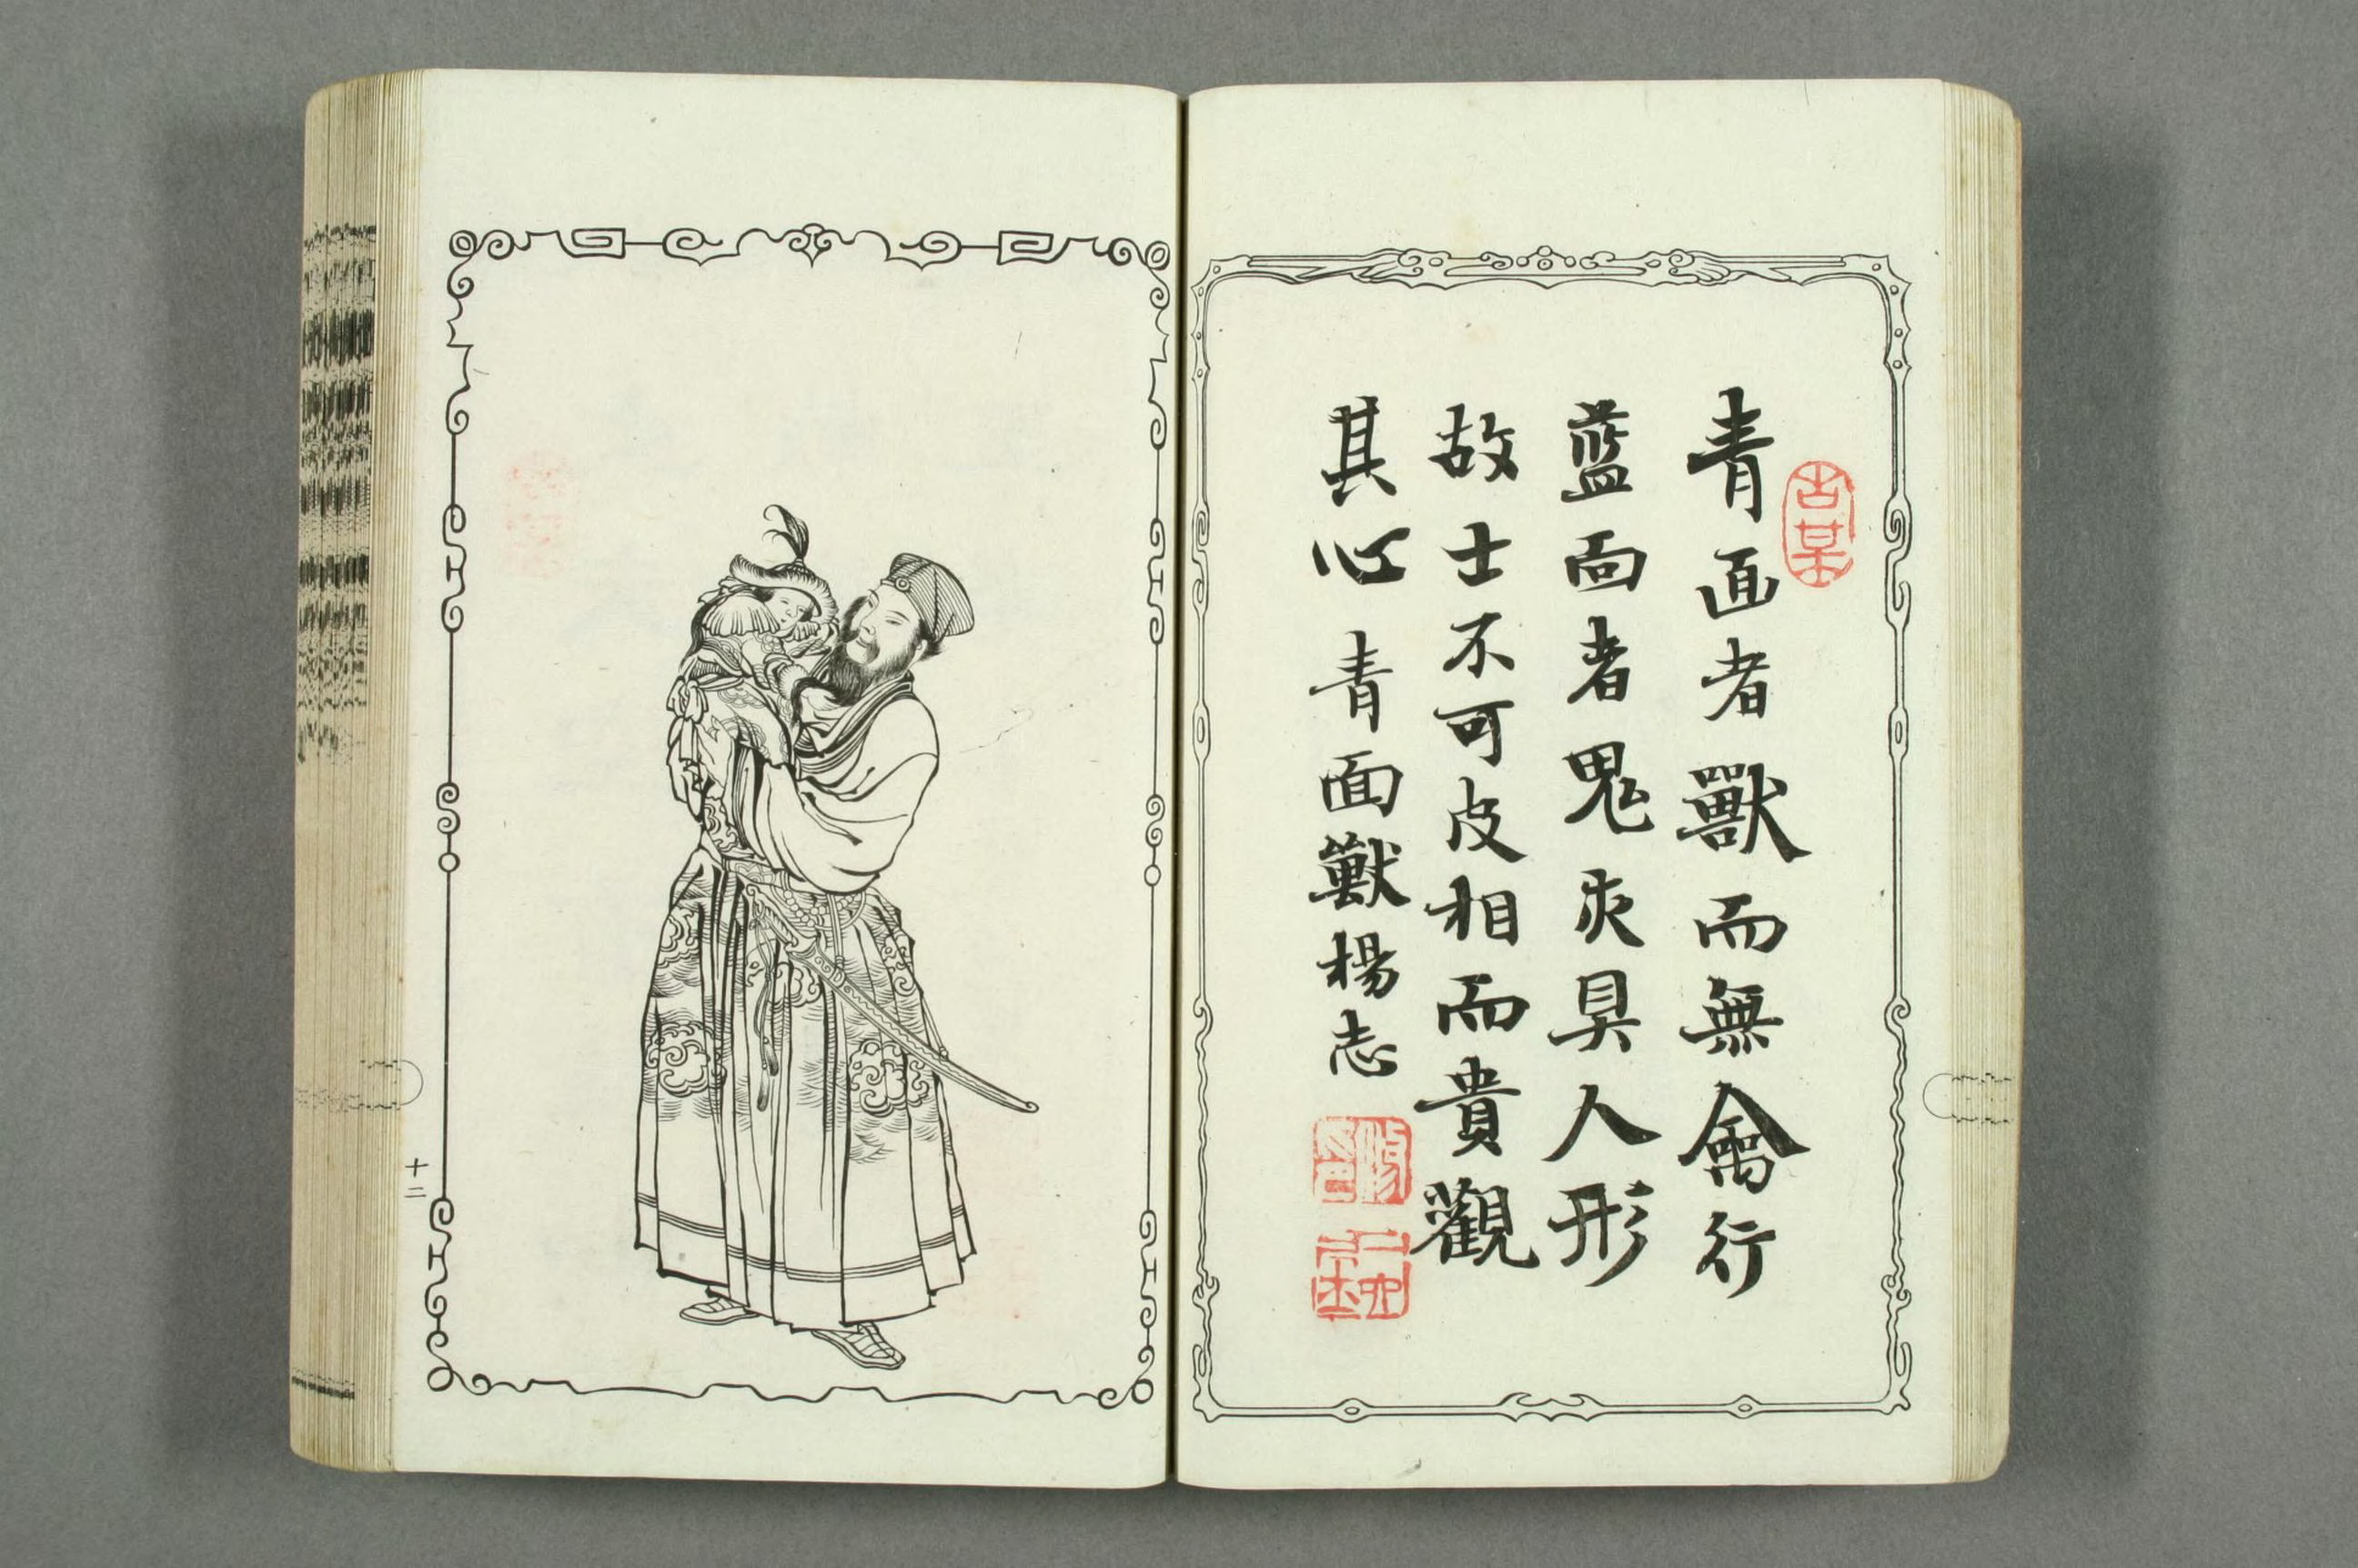 青面者獸而無禽行
藍面者鬼灰具人形
故士不可皮相而貴觀
其心 青面獸楊志
十二